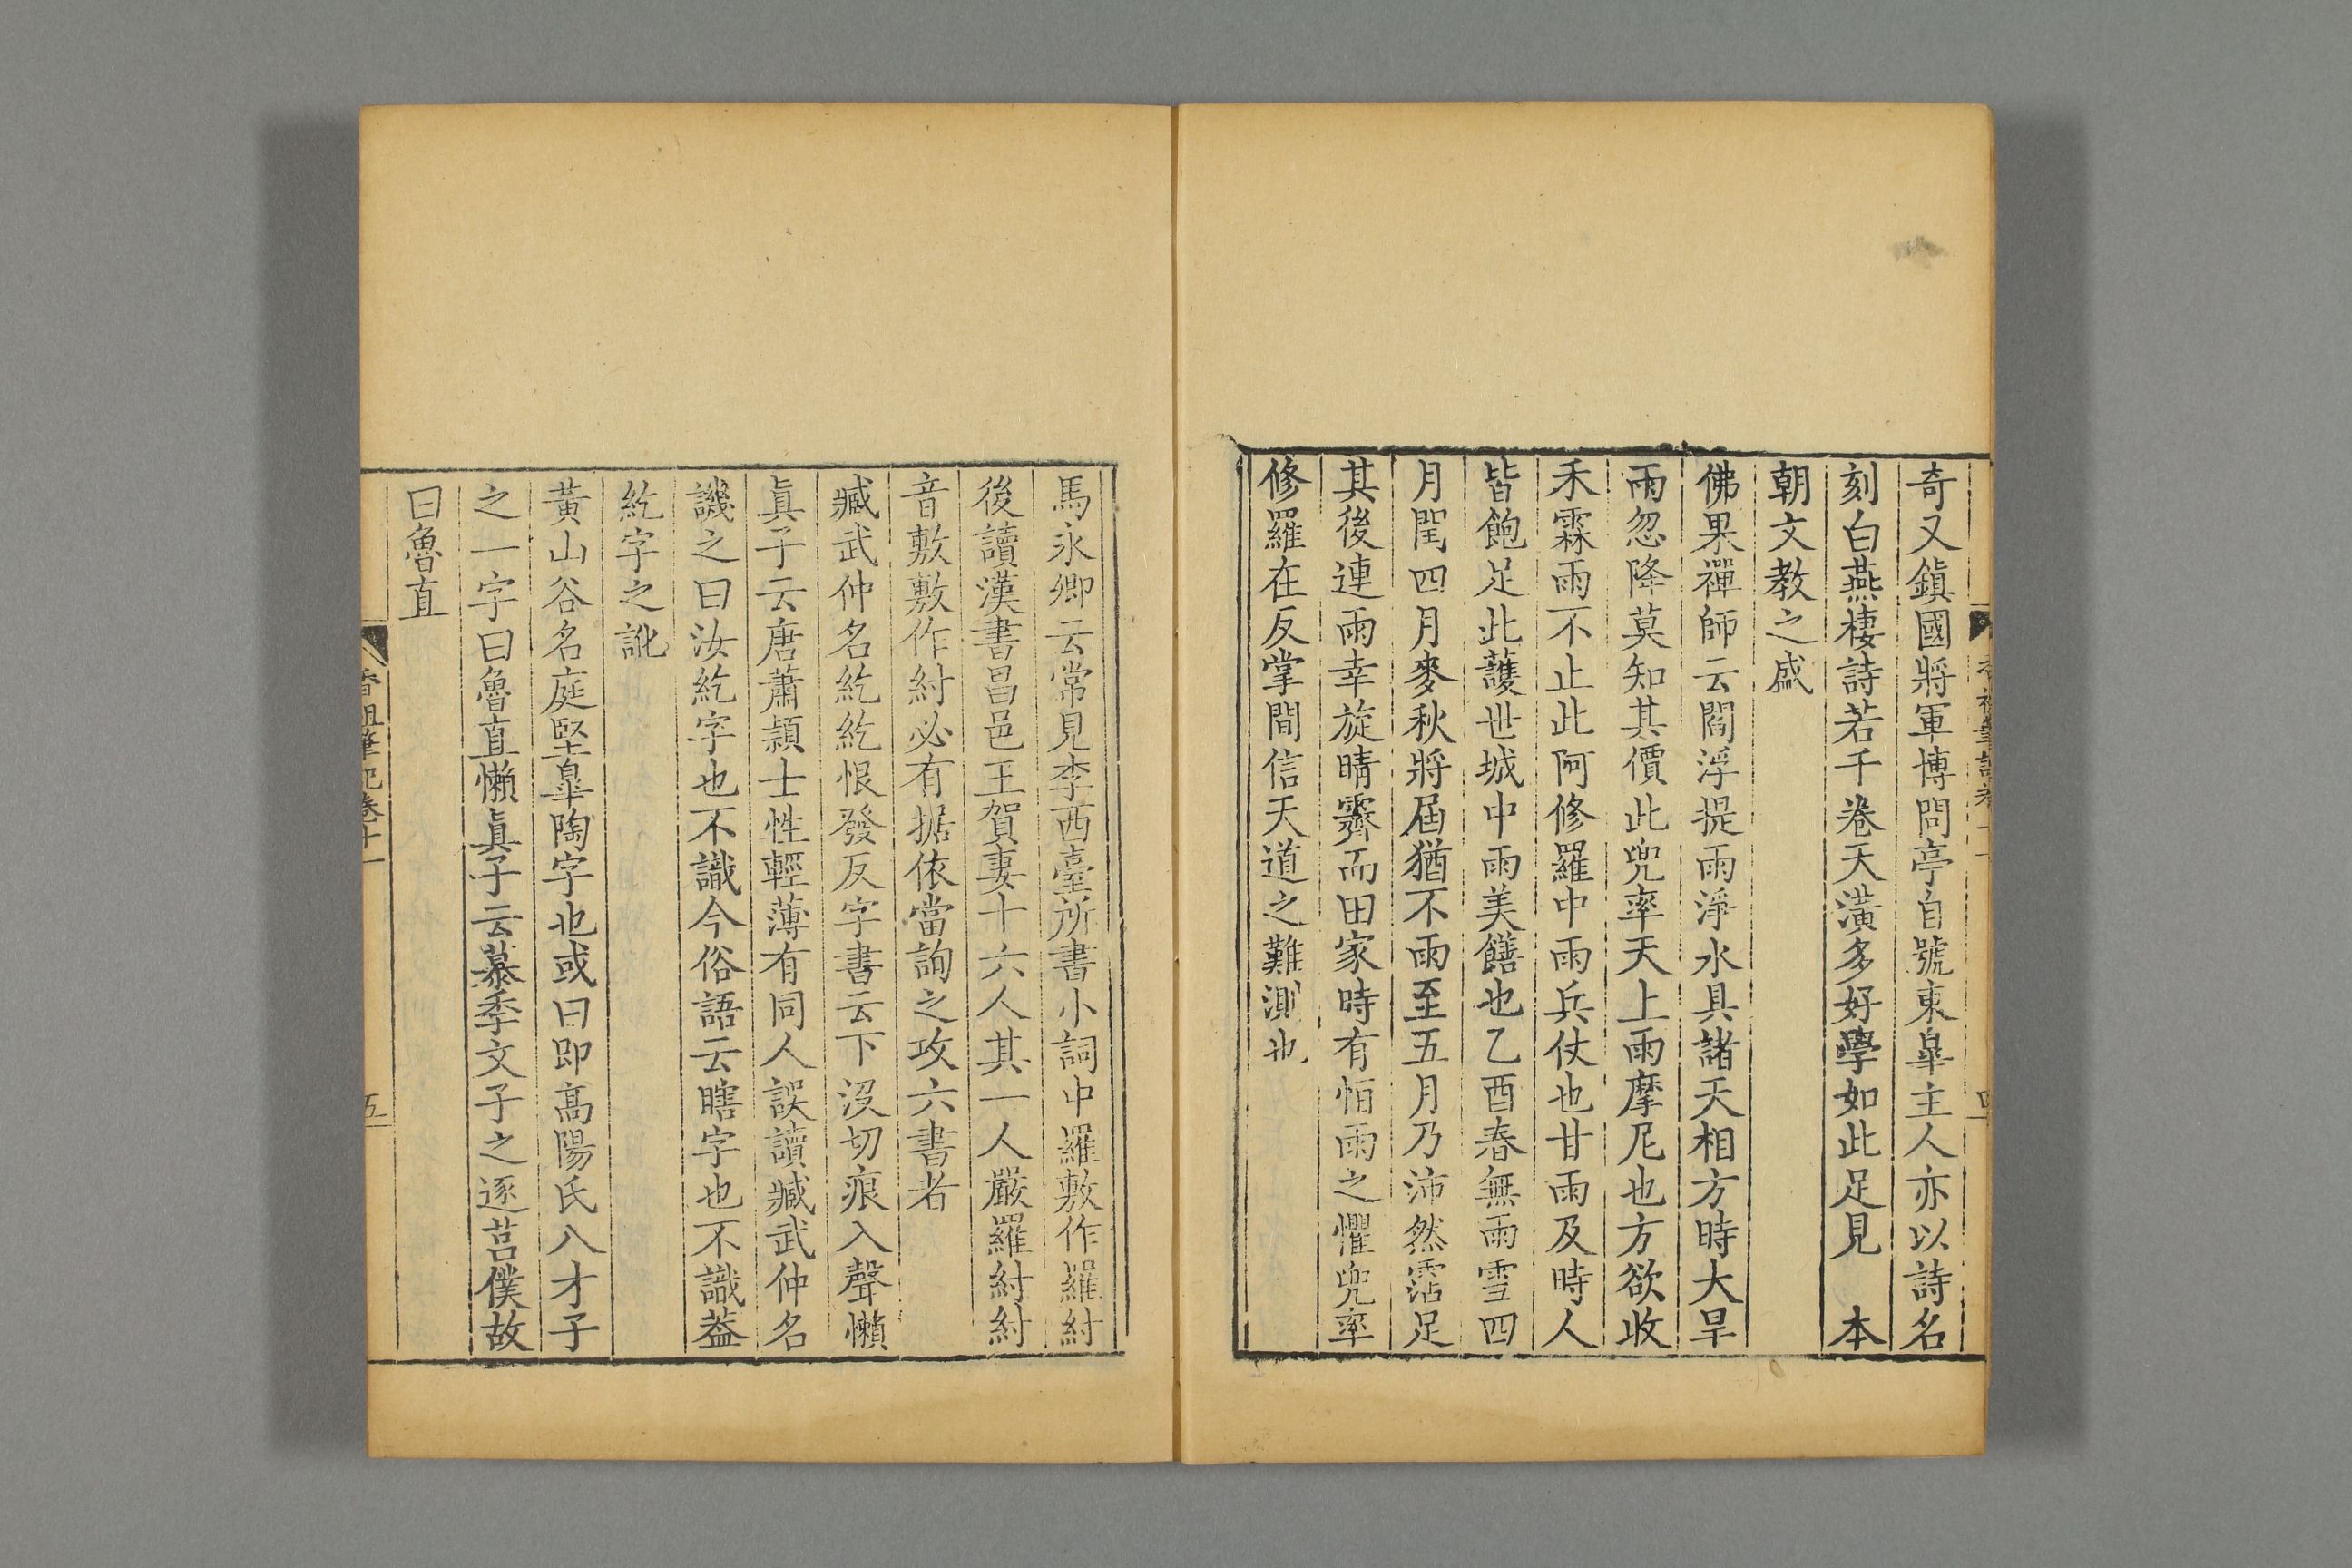 奇又鎮國將軍博問亭自號東皐主人亦以詩名
刻白燕棲詩若干卷天潢多好學如此足見　本
朝文教之盛
佛果禪師云閻浮提雨淨水具諸天相方時大旱
雨忽降莫知其價此兜率天上雨摩尼也方欲收
禾霖雨不止此阿修羅中雨兵仗也甘雨及時人
皆飽足此護世城中雨美饍也乙酉春無雨雪四
月閏四月麥秋將屆猶不雨至五月乃沛然霑足
其後連雨幸旋晴霽而田家時有怕雨之懼兜率
修羅在反掌間信天道之難測也
馬永卿云常見李西臺所書小詞中羅敷作羅紂
後讀漢書昌邑王賀妻十六人其一人嚴羅紂紂
音敷敷作紂必有据依當詢之攻六書者
臧武仲名紇紇恨發反字書云下沒切痕入聲懶
眞子云唐蕭頴士性輕薄有同人誤讀臧武仲名
譏之曰汝紇字也不識今俗語云瞎字也不識葢
紇字之訛
黃山谷名庭堅皐陶字也或曰卽高陽氏八才子
之一字曰魯直懶眞子云慕季文子之逐莒僕故
曰魯直
香祖筆記卷十一
五